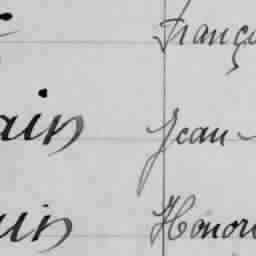 Franço
ain Jean-
uin Honor